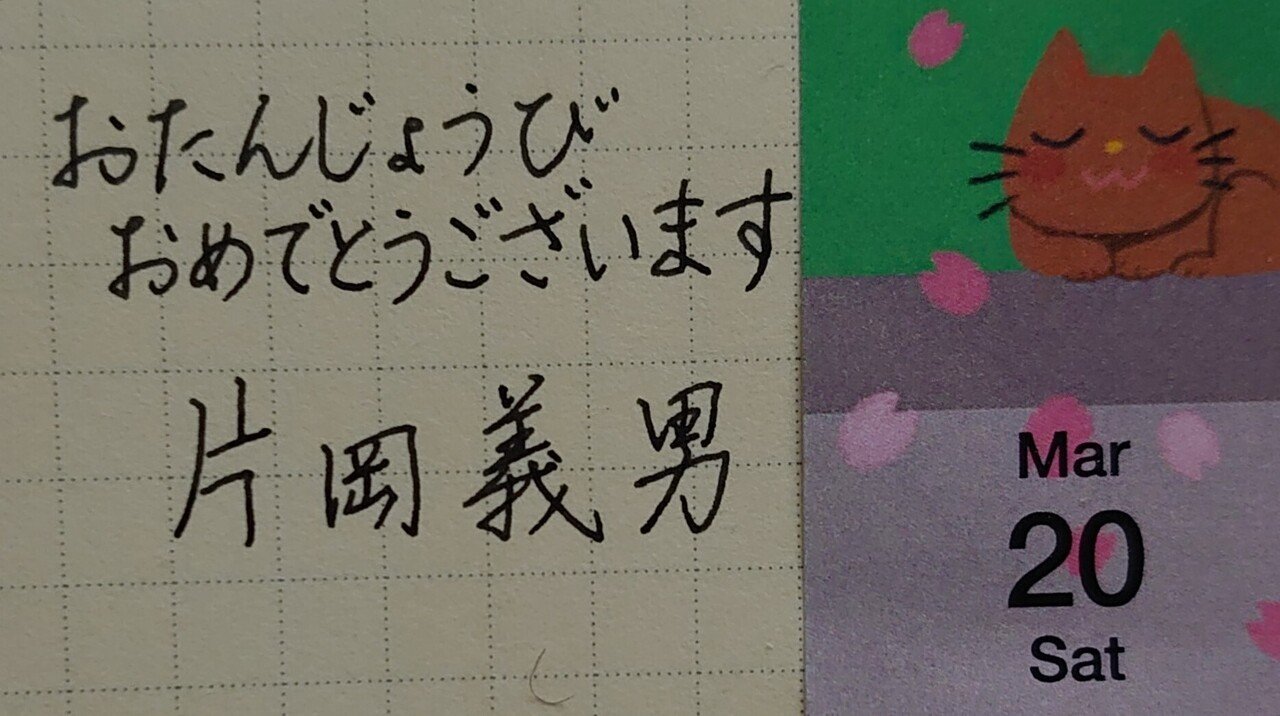 おたんじょうび
おめでとうございます
片岡義男
Mar
20
Sat